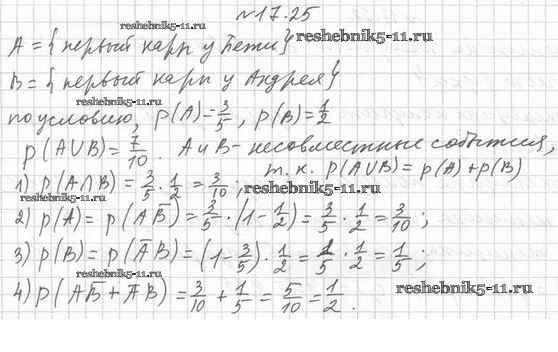 №17.25
reshebnik5-11.ru
A = { первый карп у Пети }
reshebnik5-11.ru
B = { первый карп у Андрея }
reshebnik5-11.ru
по условию, p(A) = 3/5, p(B) = 1/2
p(A∪B) = 7/10. A и B - несовместные события,
т.к. p(A∪B) = p(A) + p(B)
1) p(A∩B) = 3/5 · 1/2 = 3/10;
reshebnik5-11.ru
reshebnik5-11.ru
2) p(A) = p(AB̄) = 3/5 · (1 - 1/2) = 3/5 · 1/2 = 3/10;
3) p(B) = p(ĀB) = (1 - 3/5) · 1/2 = 2/5 · 1/2 = 1/5;
reshebnik5-11.ru
4) p(AB̄ + ĀB) = 3/10 + 1/5 = 5/10 = 1/2.
reshebnik5-11.ru